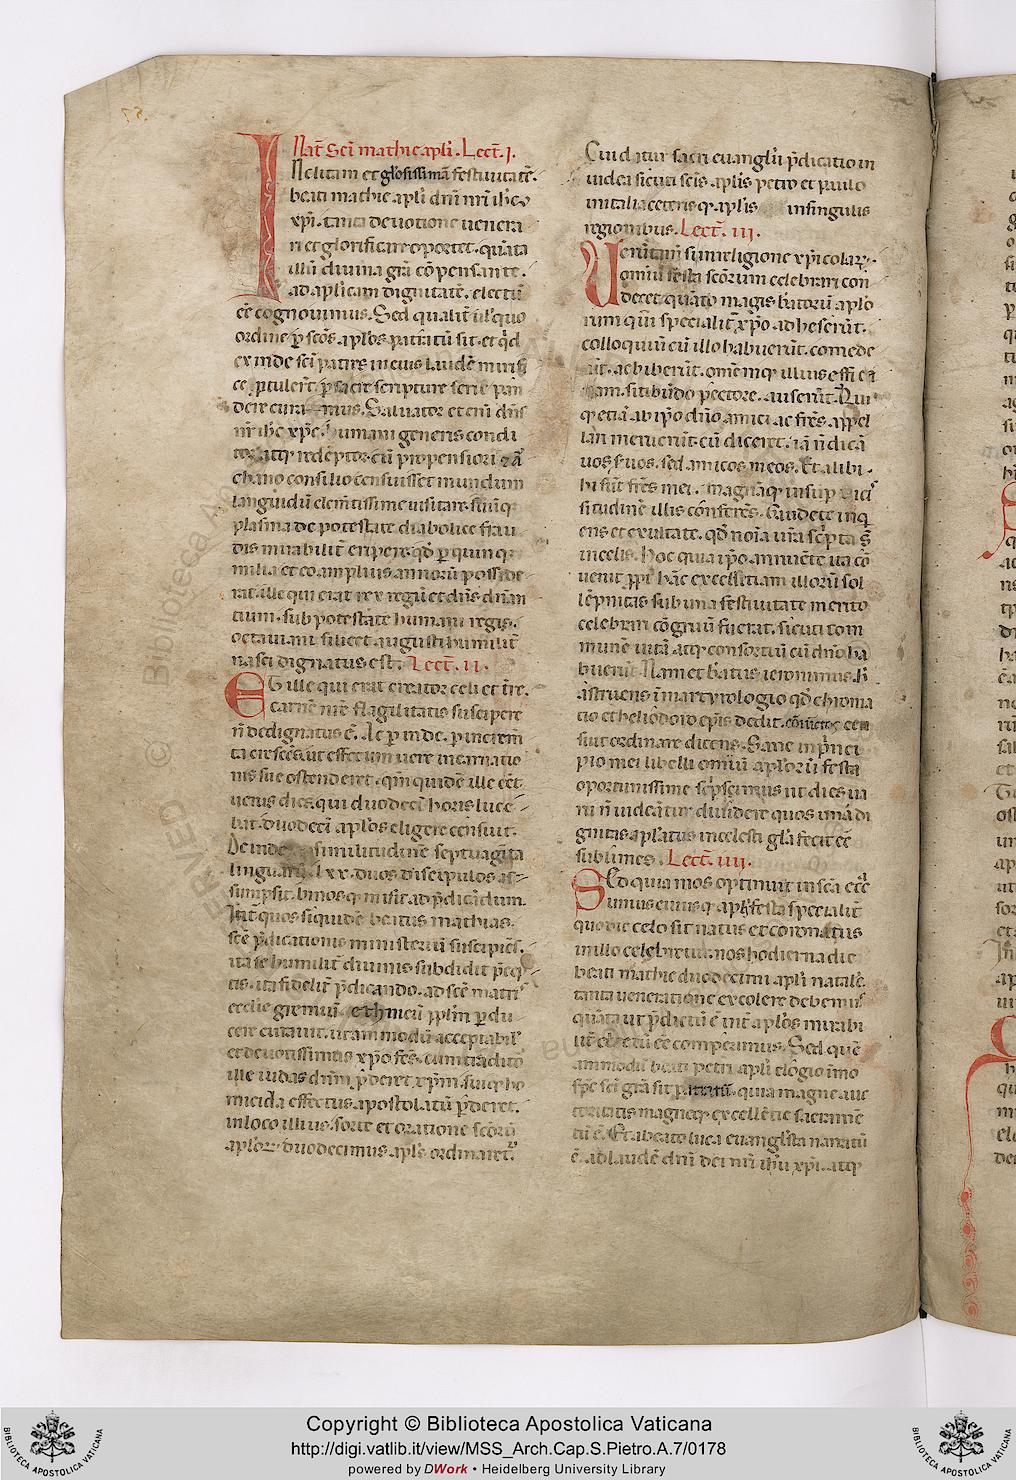 Nat̄ Sci mathie apli. Lect. I.
INclitam et gl'osissimā festiuitatē.
beati mathie apli dn̄i nr̄i ih̄u
xp̄i. tanta deuotione uenera
ri et glorificare oportet. quāta
illū diuina gr̄a cōpensante.
ad aplicam dignitatē. electū
eē cognouimus. Sed qualit̄ uł quo
ordine p̄ scōs. aplos
ex inde sci patres in eius laudē
ce p̄tulerīt. p̄ sacre scripture seriē pan
dere cura mus. Saluator et enī dn̄s
nr̄ ih̄c xp̄c. humani generis condi
tor. atq; redēptor. cū propensiori
chano consilio censuisset mundum
languidū clemētissime uisitare. suāq;
plasma de potestate diabolice frau
dis mirabilit̄ eripere. qd̄ per quinq;
milia et eo amplius annorū posside
rat. ille qui erat rex regū et dn̄s dn̄an
tium. sub potestate humani regis.
octauiani silicet augusti humilit̄
nasci dignatus est. Lect. II.
ET ille qui erat creator celi et tr̄e.
carnē nr̄e flagilitatis suscipere
n̄ dedignatus ē. Ac p̄ inde. p̄ increm̄
ta crescēs. ut effectum uere incarnatio
nis sue ostenderet. qm̄ quidē ille eēt
uerus dies. qui duodeci horis luce
bat. duodecī aplos eligere censuit.
Deinde similitudinē septuagīta
linguarū. Lxx. duos discipulos as
sumpsit. binosq; misit ad p̄dicādum.
Int̄ quos siquidē beatus mathias.
scē p̄dicationis ministeriū suscipiēs.
ita se humilit̄ diuinis subdidit p̄cep
tis. ita fidelit̄ p̄dicando. ad scē matris
ecclie gremiū. ethnicū pplm̄ p̄du
cere curauit. utram modū acceptabil'
et deuotissimus xp̄o fēs. cum traditor
ille iudas dn̄m p̄deret xp̄m. suiq; ho
micida effectus. apostolatū p̄deret.
in loco illius. sorte et oratione scōrū
aplor̄. duodecimus apls ordinaret.
Cui datur sacri euanglii p̄dicatio in
iudea sicuti scis. aplis petro et paulo
in italia ceterisq; aplis in singulis
regionibus. Lect. III.
Ueritām̄ si in religione xp̄icolar̄.
omiū festa scōrum celebrari con
decet quāto magis b̄atorū aplo
rum qui specialit̄ xp̄o adheserūt.
colloquiū cū illo habuerūt. comede
rūt. ac biberūt. omēmq; illius effica
tiam. sitibūdo pectore. auserūt. Qui
q; etiā ab ipo dn̄o amici ac fr̄es appel
lari meruerūt. cū diceret. iā n̄ dicā
uos seruos. sed amicos meos. Et alibi.
hi sūt fr̄es mei. magnāq; insup
situdinē illis cōnferēs. Gaudete inq̄
ens et exultate. qd̄ noīa uīa scripta sū
in celis. Hoc quia ipo annuēte ita cō
uenit ppt̄ hāc excellētiam illorū sol
lēpnitas sub una festiuitate merito
celebrari cōgruū fuerat. sicuti com
munē uitā atq; consortiū cū dn̄o ha
buerūt. Nam et b̄atus ieronimus. h̄
astruens ī martyrologio qd̄ chroma
tio et heliodoro ep̄is dedit.
suit ordinare dicens. Sane in prīci
pio mei libelli omiū aplorū festa
oportunissime scripsimus ut dies ua
rii n̄ uideātur diuidere quos una di
gnitas aplatus in celesti glā fecit eē
sublimes. Lect. IIII.
SEd quia mos optinuit in scā eccl
uniuscuiusq; apli festa specialit̄
quo die celo sit natus et coronatus
in illo celebretur. nos hodierna die
beati mathie duodecimi apli natale
tanta ueneratione excolere debemus
quāta ut p̄dictū ē int̄ aplos mirabi
lit̄ electū eē comperimus. Sed quē
ammodū beati petri apli elogio īmo
spc sci grā sit quia magne auc
toritatis magneq; excellētie sacramē
tū ē. Et a beato luca euanglista narratū
ē. ad laudē dn̄i dei nr̄i ih̄u xp̄i. atq;
Copyright © Biblioteca Apostolica Vaticana
http://digi.vatlib.it/view/MSS_Arch.Cap.S.Pietro.A.7/0178
powered by DWork • Heidelberg University Library